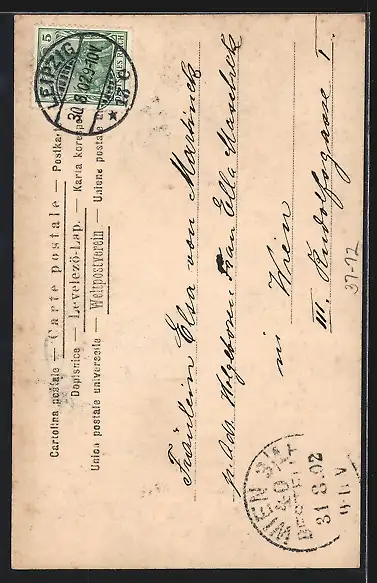 5
DEUTSCHES REICH
LEIPZIG
30 8 02 9-10V
Cartolina postale — Carte postale — Postka
Dopisnice — Levelező-Lap. — Karta korespo
Union postale universelle — Weltpostverein — Unione postale
Fräulein Elsa von
p. Adr. Frau Ella
in Wien
III. Rudolfsgasse 1.
37-12
WIEN 3/1
40
BESTELLT
31 8 02
9 U V